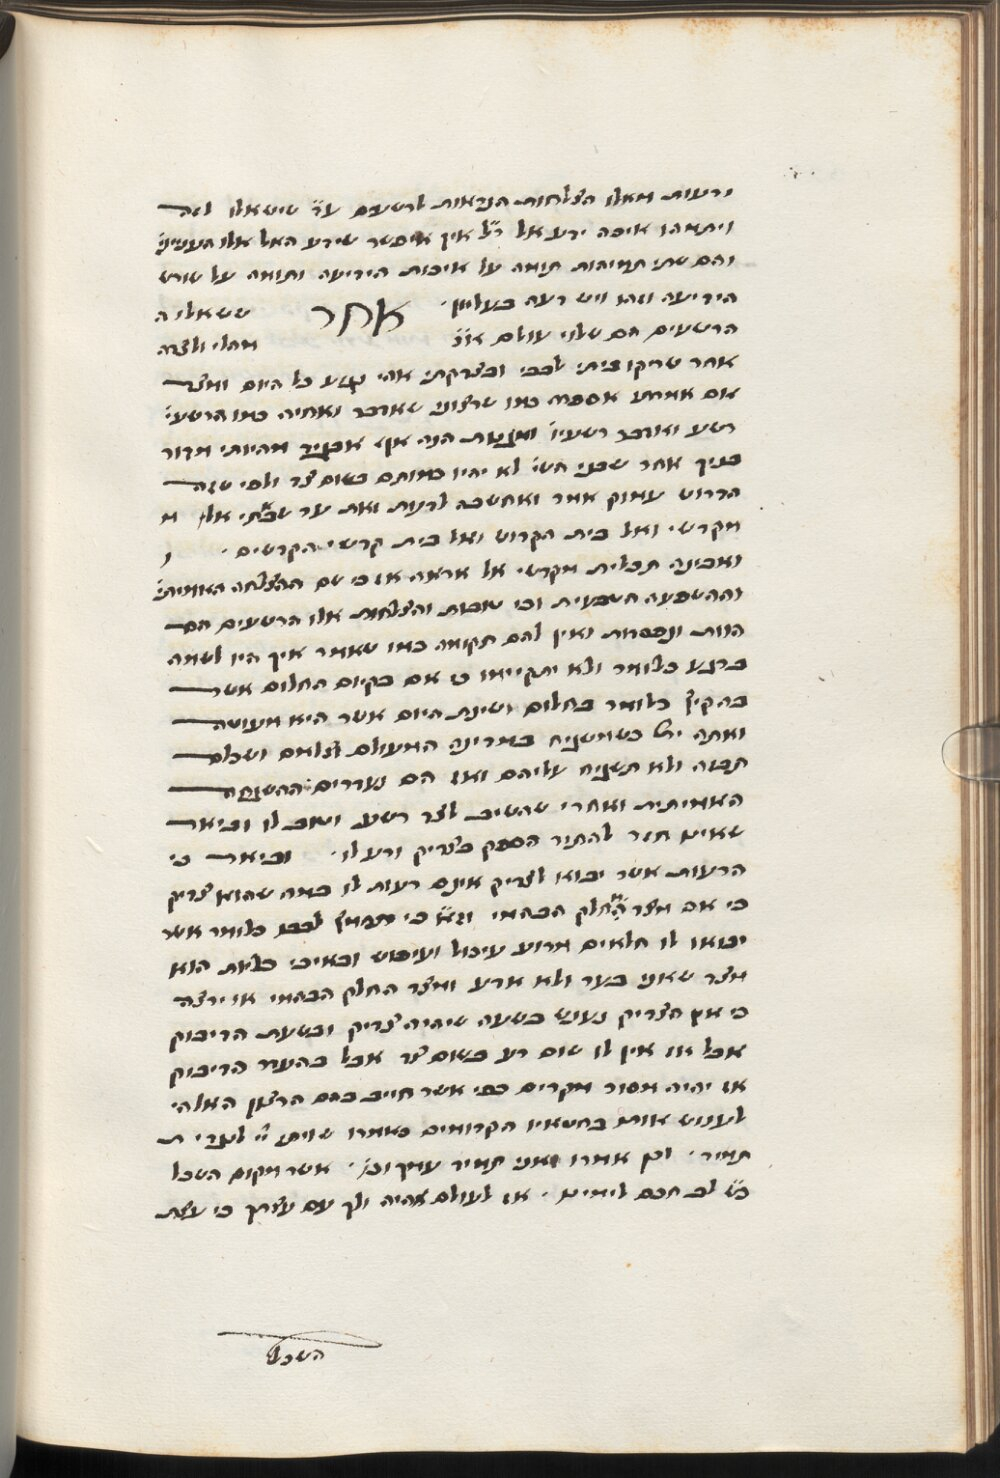 ודעות מאלו הצלחות הנראות לרשעים עד שישאלו לזה
ויתמהו איכה ידע אל ר״ל אין איפשר שידע האל אלו העניני׳
והם שתי תמיהות תומה על איכות הידיעה ותומה על שורש
הידיעה ומהו ויש דעה בעליון · אחר ששאלו ה
הרשעים הם שלוי עולם אז׳ מחלי ולצרה
אחר שריקותי לבבי ובצדקתי אהי נגוע כל היום ומצד
אם אמרתי אספרה כמו שרצוני שאדבר ואחיה כמו הרשעי׳
רשע ואדבר רשעיו׳ הנה אני אבגיד מהיותי מדור
בניך אחר שבני הש׳ לא יהיו כמותם בשום צד ולפי שזה
הדרוש עמוק אמר ואחשבה לדעת זאת עד שבאתי אל מ
מקדשי ואל בית הקדוש ואל בית קדשי הקדשים · ו
ואבינה תכלית מקדשי אל אראה אז כי שם ההצלחה האמיתי׳
וההשפעה השכעית וכי טובות והצלחות אלו הרשעים הם
הוות ונפסדות ואין להם תקומה כמו שאמר איך היו לשמה
כרגע כלומר ולא יתקיימו כי אם כקיום החלום אשר
בהקיץ כלומר בחלום ושינת היום אשר היא מעוטה
ואתה ית׳ כשמשגיח במדינה המעולם צלמם ושכלם
תבזה ולא תשגיח עליהם ואז הם נעדרים מההשגחה
האמיתית ואחרי שהשיב לצד רשע וטוב לו וביאר
שאינו חזר להתיר הספק בצדיק ורע לו · וביאר כי
הרעות אשר יבואו לצדיק אינם רעות לו במה שהוא צדיק
כי אם מצד החלק הבהמי וז״א כי יתחמץ לבבי כלומר אשר
יבואו לו חלאים מרוע עיכול ועיפוש ובאיבי כליות הוא
מצד שאני בער ולא אדע ומצד החלק הבהמי או ירצה
כי אין הצדיק נענש בשעה שיהיה צדיק ובשעת הדיבוק
אבל אז אין לו שום רע בשום צד אבל בהעדר הדיבוק
אז יהיה מסור מקרים כפי אשר חוייב בהם הרצון האלהי
לענוש אותו בחטאיו הקדומים כאמרו שויתי יי׳ לנגדי ת
תמיד · וכן אמרו ואני תמיד עמך וכו׳ · אשר מקום השכל
כש׳ לב חכם לימינו · אז לעולם אהיה ולך עם עצתך כי עצת
השכל